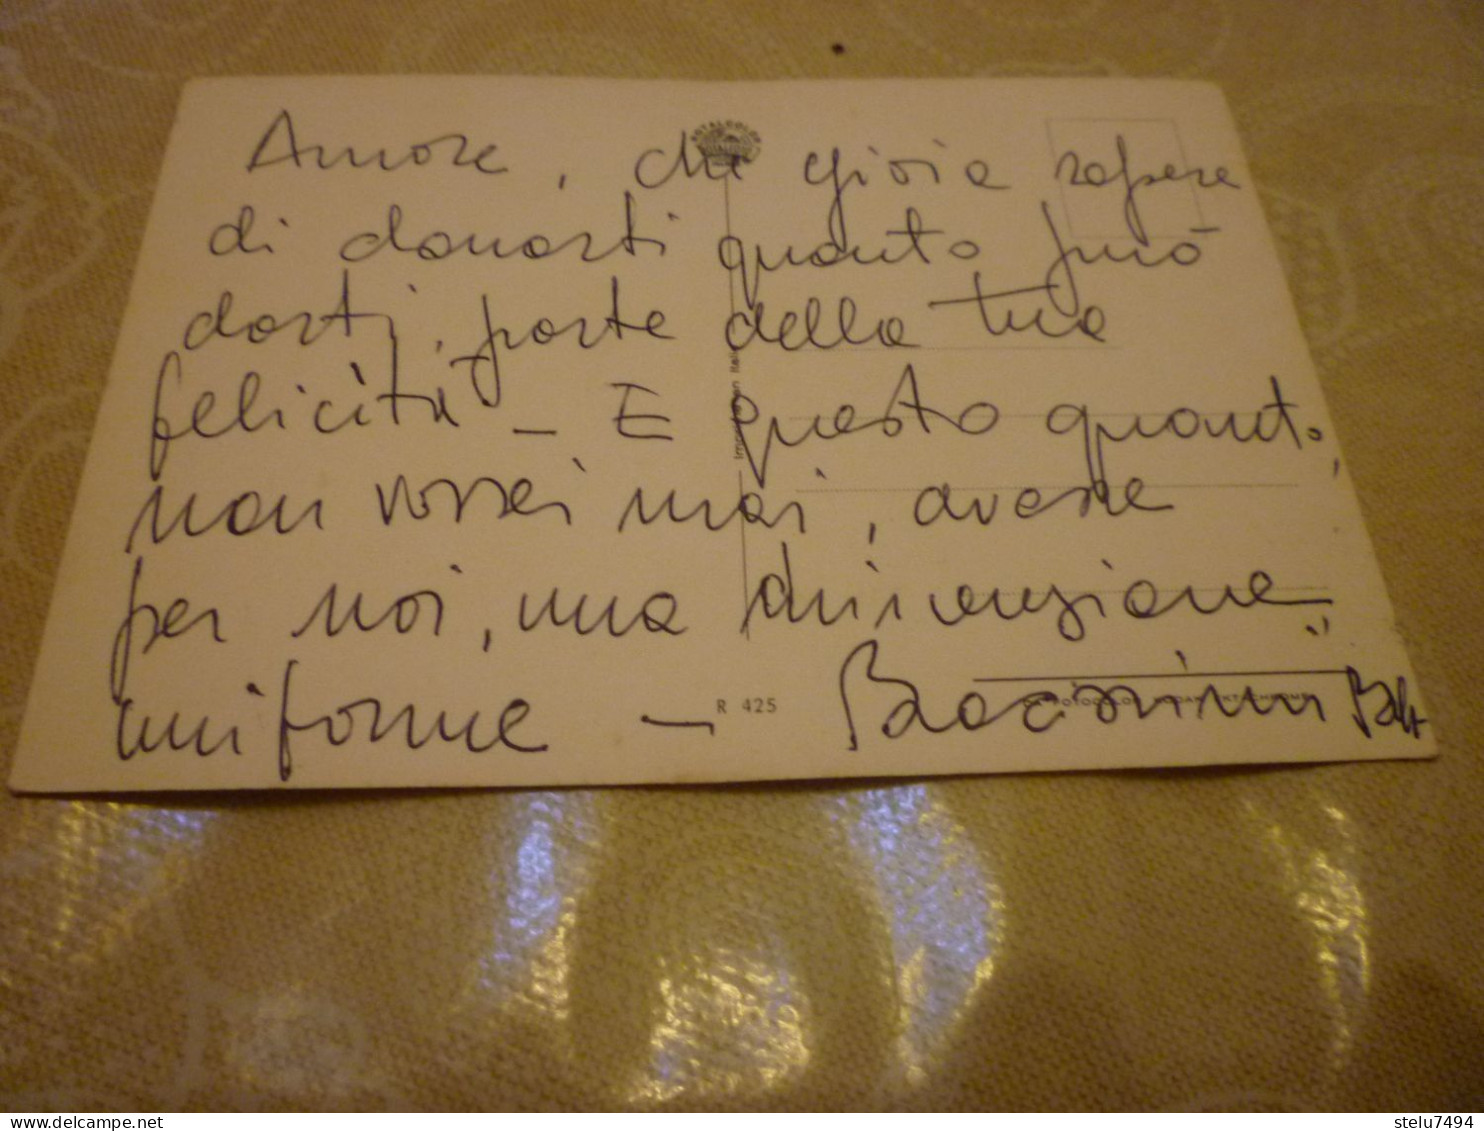 Amore, che gioia sapere
di donarti quanto può
darti, parte della tua
felicità - E questo quanto,
non vorrei mai, avesse
per noi, una dimensione
uniforme - Bacionini
R 425
stelu7494